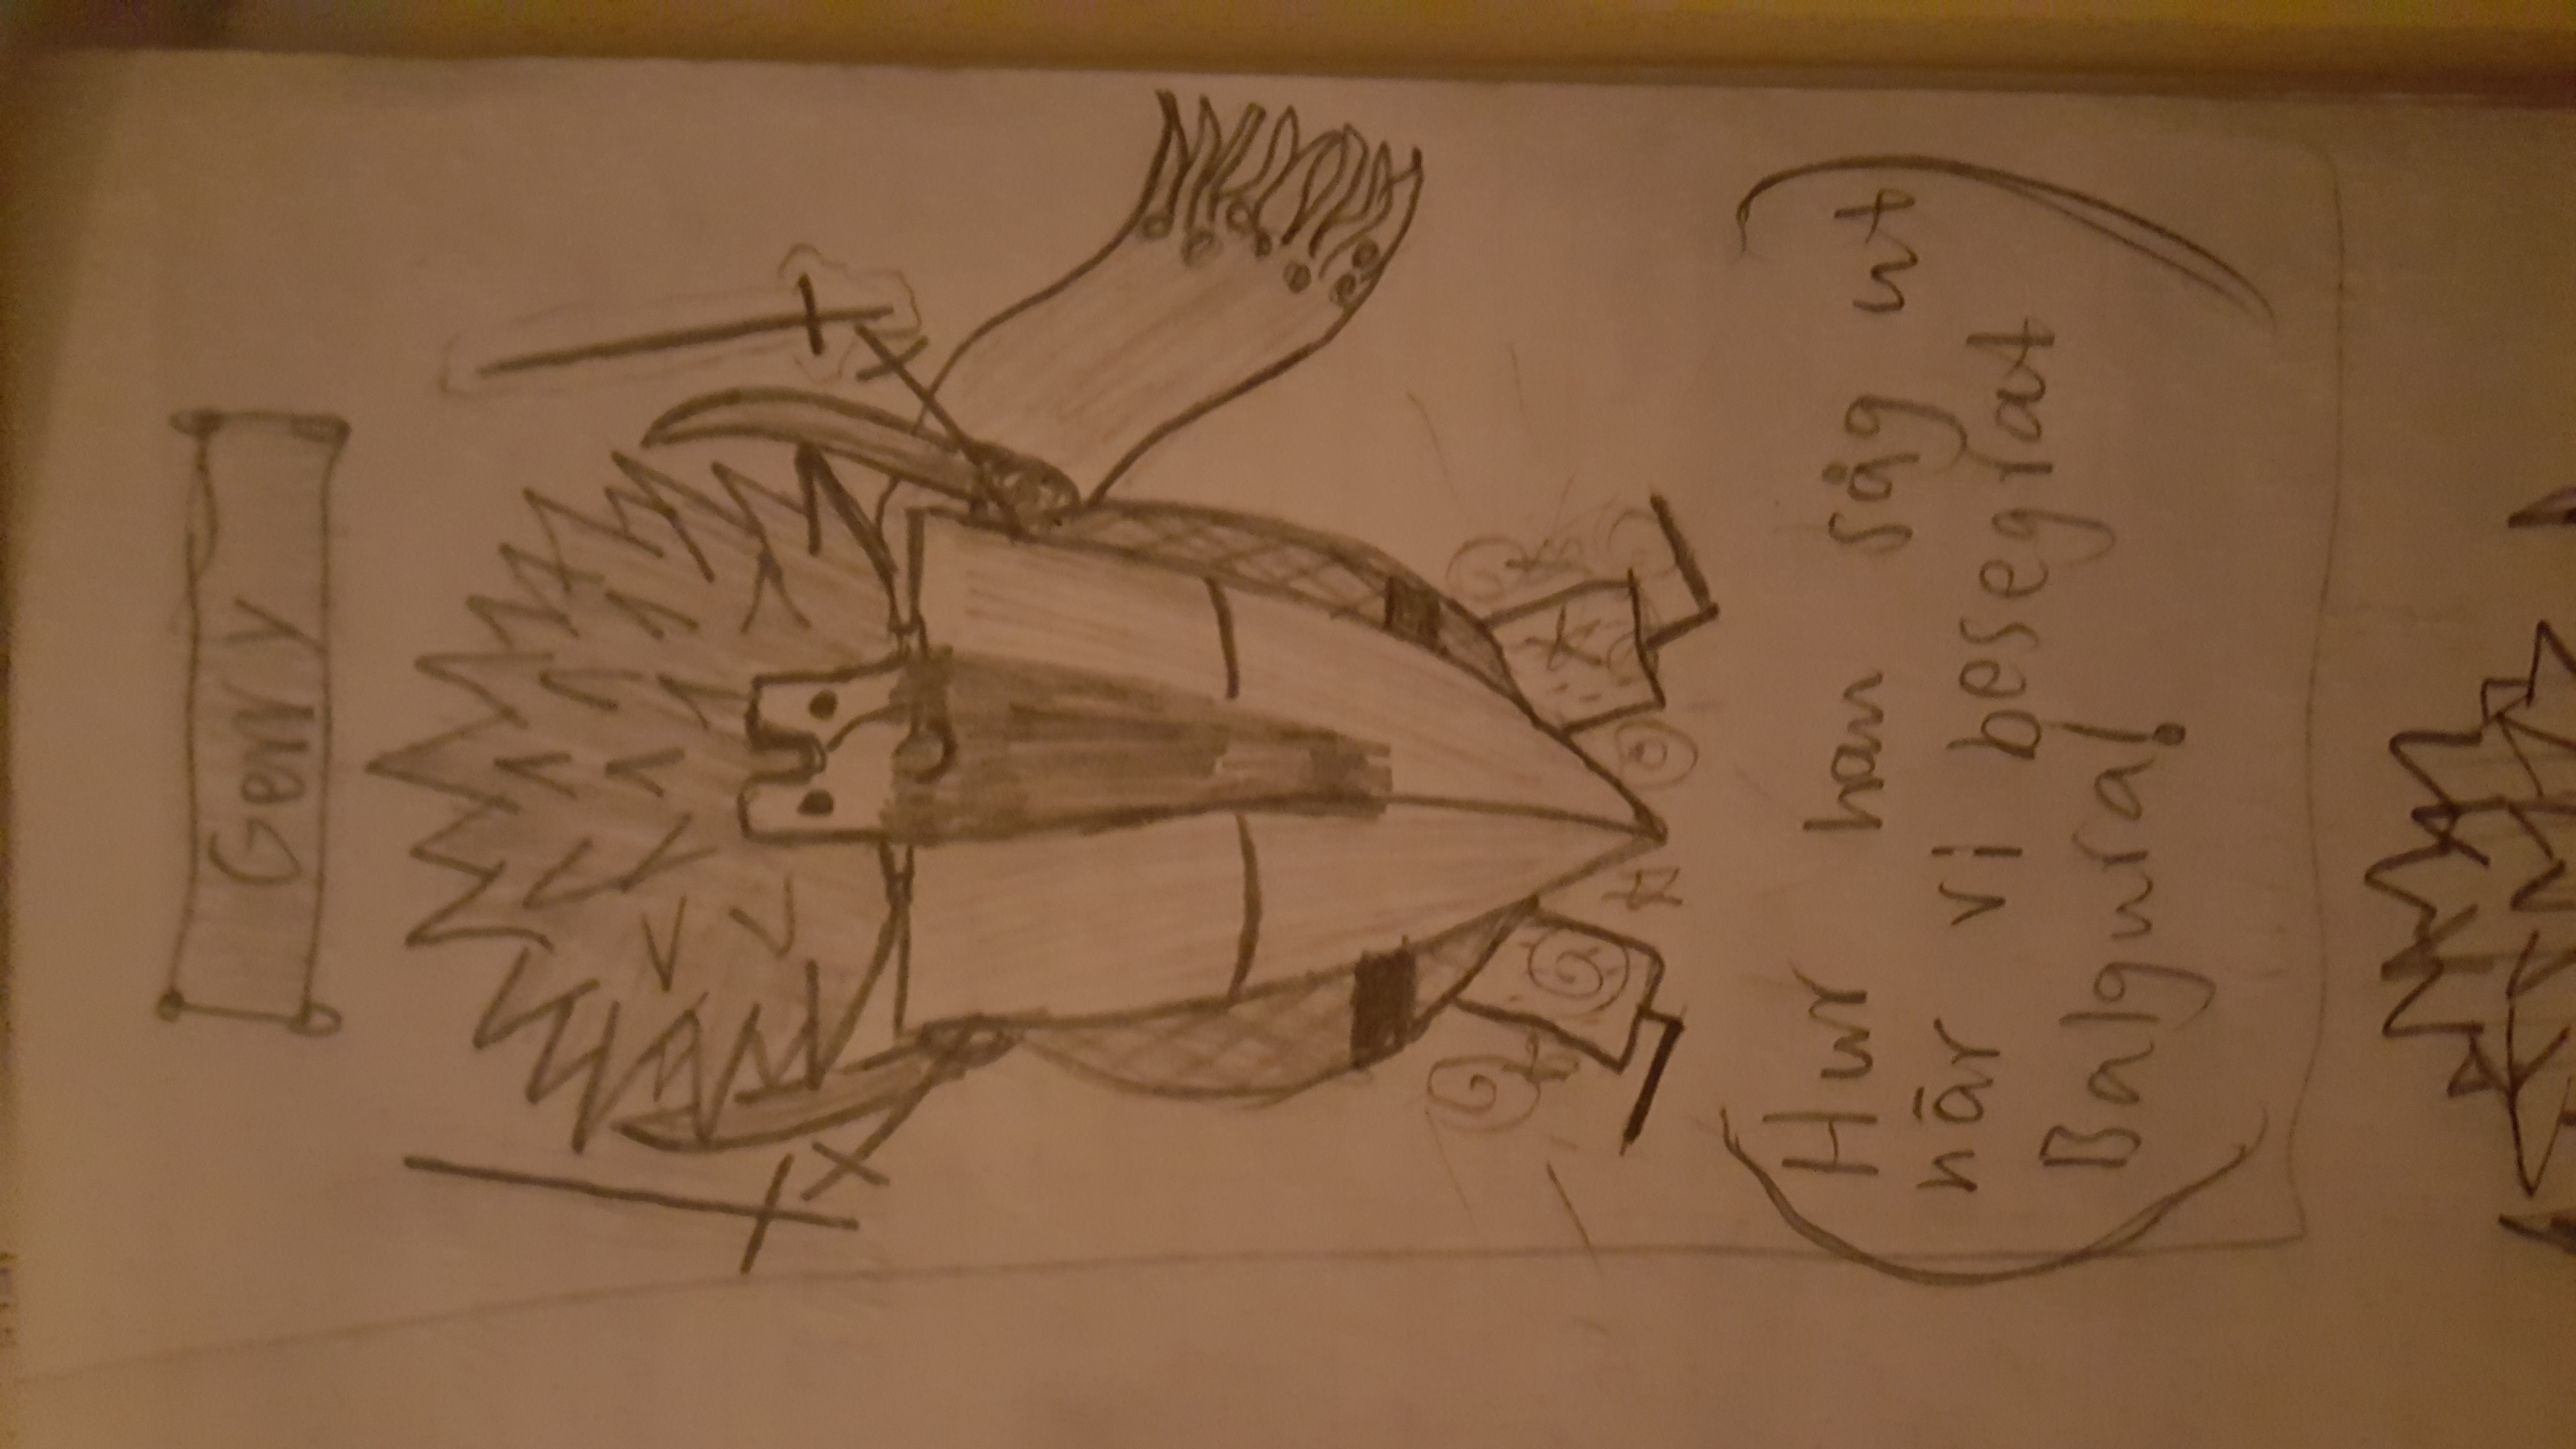 Gerry
Hur han såg ut
när vi besegrat
Balgura!